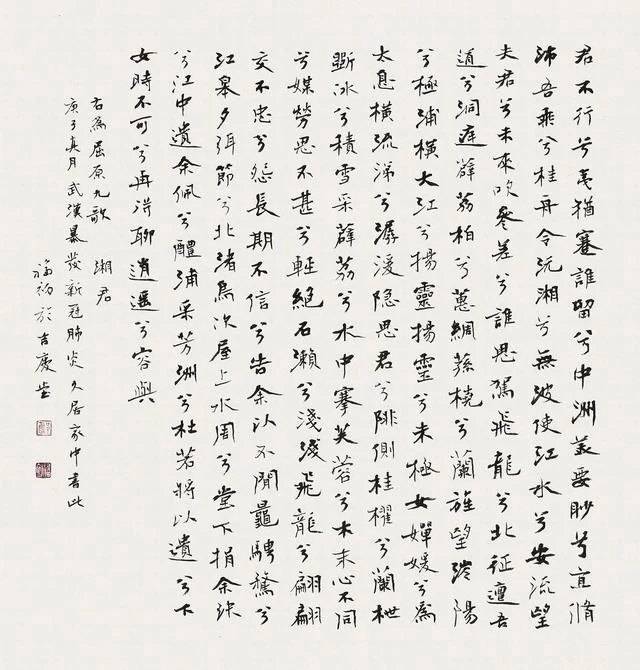 君不行兮夷猶蹇誰留兮中洲美要眇兮宜脩
沛吾乘兮桂舟令沅湘兮無波使江水兮安流望
夫君兮未來吹參差兮誰思駕飛龍兮北征邅吾
道兮洞庭薜荔柏兮蕙綢蓀橈兮蘭旌望涔陽
兮極浦橫大江兮揚靈揚靈兮未極女嬋媛兮為
太息橫流涕兮潺湲隱思君兮陫側桂櫂兮蘭枻
斲冰兮積雪采薜荔兮水中搴芙蓉兮木末心不同
兮媒勞恩不甚兮輕絕石瀨兮淺淺飛龍兮翩翩
交不忠兮怨長期不信兮告余以不閒鼂騁騖兮
江皋夕弭節兮北渚鳥次屋上水周兮堂下捐余玦
兮江中遺余佩兮醴浦采芳洲兮杜若將以遺兮下
女時不可兮再得聊逍遙兮容與
右為屈原九歌 湘君
庚子真月武漢暴發新冠肺炎久居家中書此
於吉慶堂